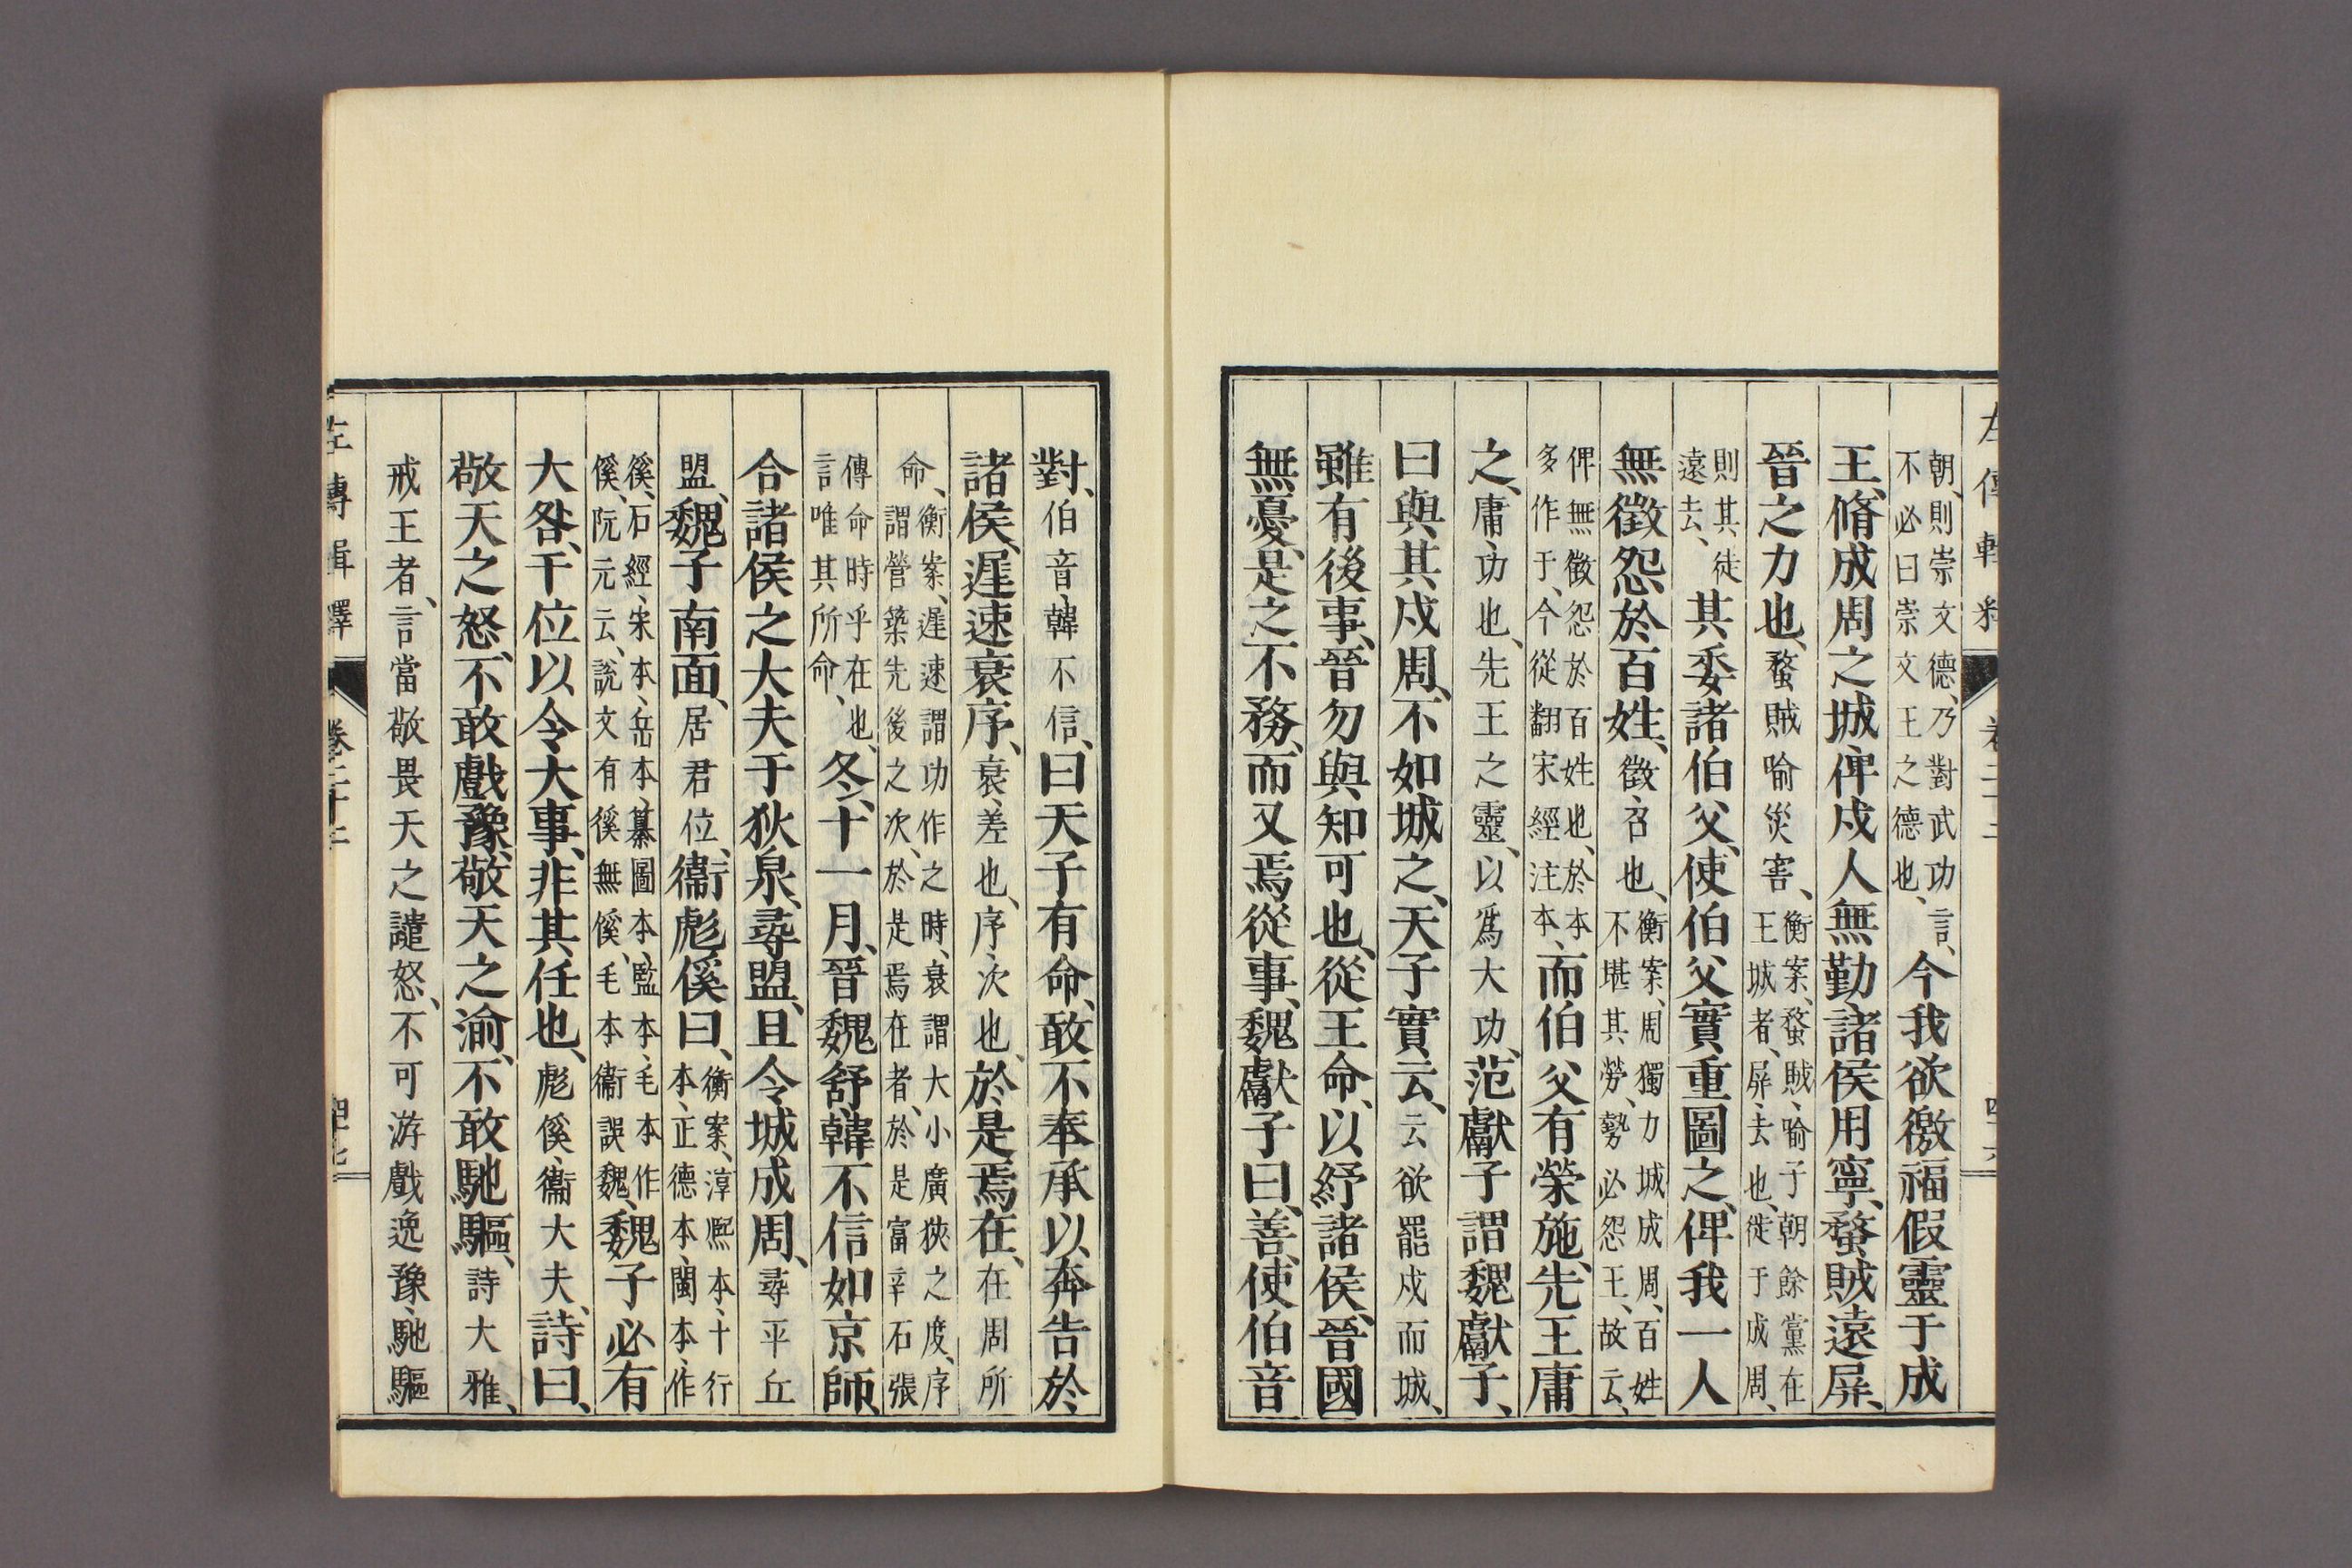 朝、則崇文德、乃對武功言、
不必曰崇文王之德也、今我欲徼福假靈于成
王、脩成周之城、俾戍人無勤、諸侯用寧、蝥賊遠屏、
晉之力也、蝥賊喻災害、衡案、蝥賊、喻子朝餘黨在
王城者、屏、去也、徙于成周、
則其徒
遠去、其委諸伯父、使伯父實重圖之、俾我一人
無徵怨於百姓、徵、召也、衡案、周獨力城成周、百姓
不堪其勞、勢必怨王、故云、
俾無徵怨於百姓也、於本
多作于、今從翻宋經注本、而伯父有榮施、先王庸
之、庸、功也、先王之靈、以爲大功、范獻子謂魏獻子、
曰與其戍周、不如城之、天子實云、云欲罷戍而城、
雖有後事、晉勿與知可也、從王命、以紓諸侯、晉國
無憂、是之不務、而又焉從事、魏獻子曰、善、使伯音
對、伯音、韓不信、曰天子有命、敢不奉承以奔告於
諸侯、遲速衰序、衰、差也、序、次也、於是焉在、在周所
命、衡案、遲速謂功作之時、衰謂大小廣狹之度、序
謂營築先後之次、於是焉在者、於是富辛石張
傳命時乎在也、
言唯其所命、冬、十一月、晉魏舒韓不信如京師、
合諸侯之大夫于狄泉、尋盟、且令城成周、尋平丘
盟、魏子南面、居君位、衞彪傒曰、衡案、淳熙本、十行
本、正德本、閩本、作
徯、石經、宋本、岳本、纂圖本、監本、毛本作
傒、阮元云、說文有徯無傒、毛本衞誤魏、魏子必有
大咎、干位以令大事、非其任也、彪傒、衞大夫、詩曰、
敬天之怒、不敢戲豫、敬天之渝、不敢馳驅、詩大雅、
戒王者、言當敬畏天之譴怒、不可游戲逸豫、馳驅
左傳輯釋
卷二十二